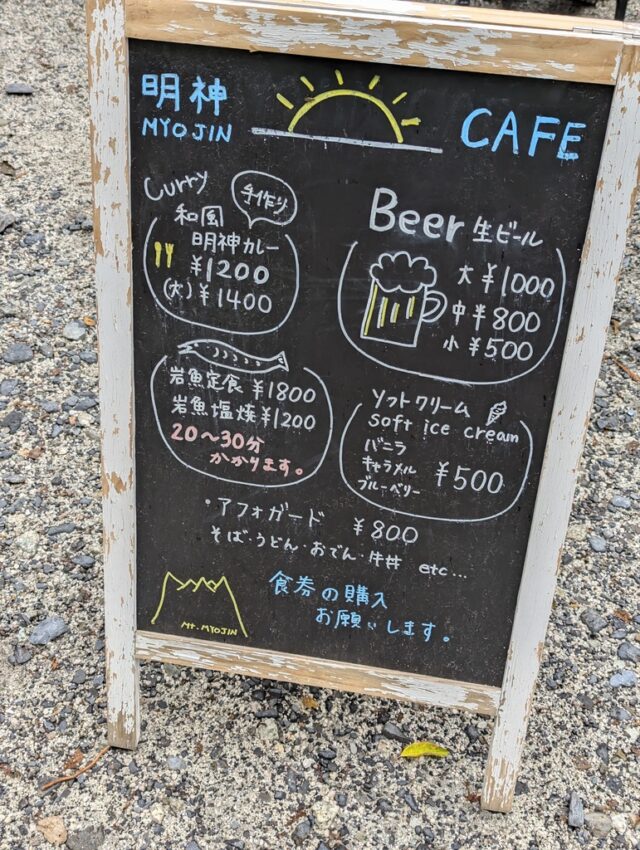 明神
MYOJIN
CAFE
Curry
手作り
和風
明神カレー
¥1200
(大)¥1400
Beer 生ビール
大 ¥1000
中 ¥800
小 ¥500
岩魚定食 ¥1800
岩魚塩焼 ¥1200
20〜30分
かかります。
ソフトクリーム
soft ice cream
バニラ
キャラメル
ブルーベリー
¥500
・アフォガード ¥800
そば・うどん・おでん・牛丼 etc...
Mt. MYOJIN
食券の購入
お願いします。